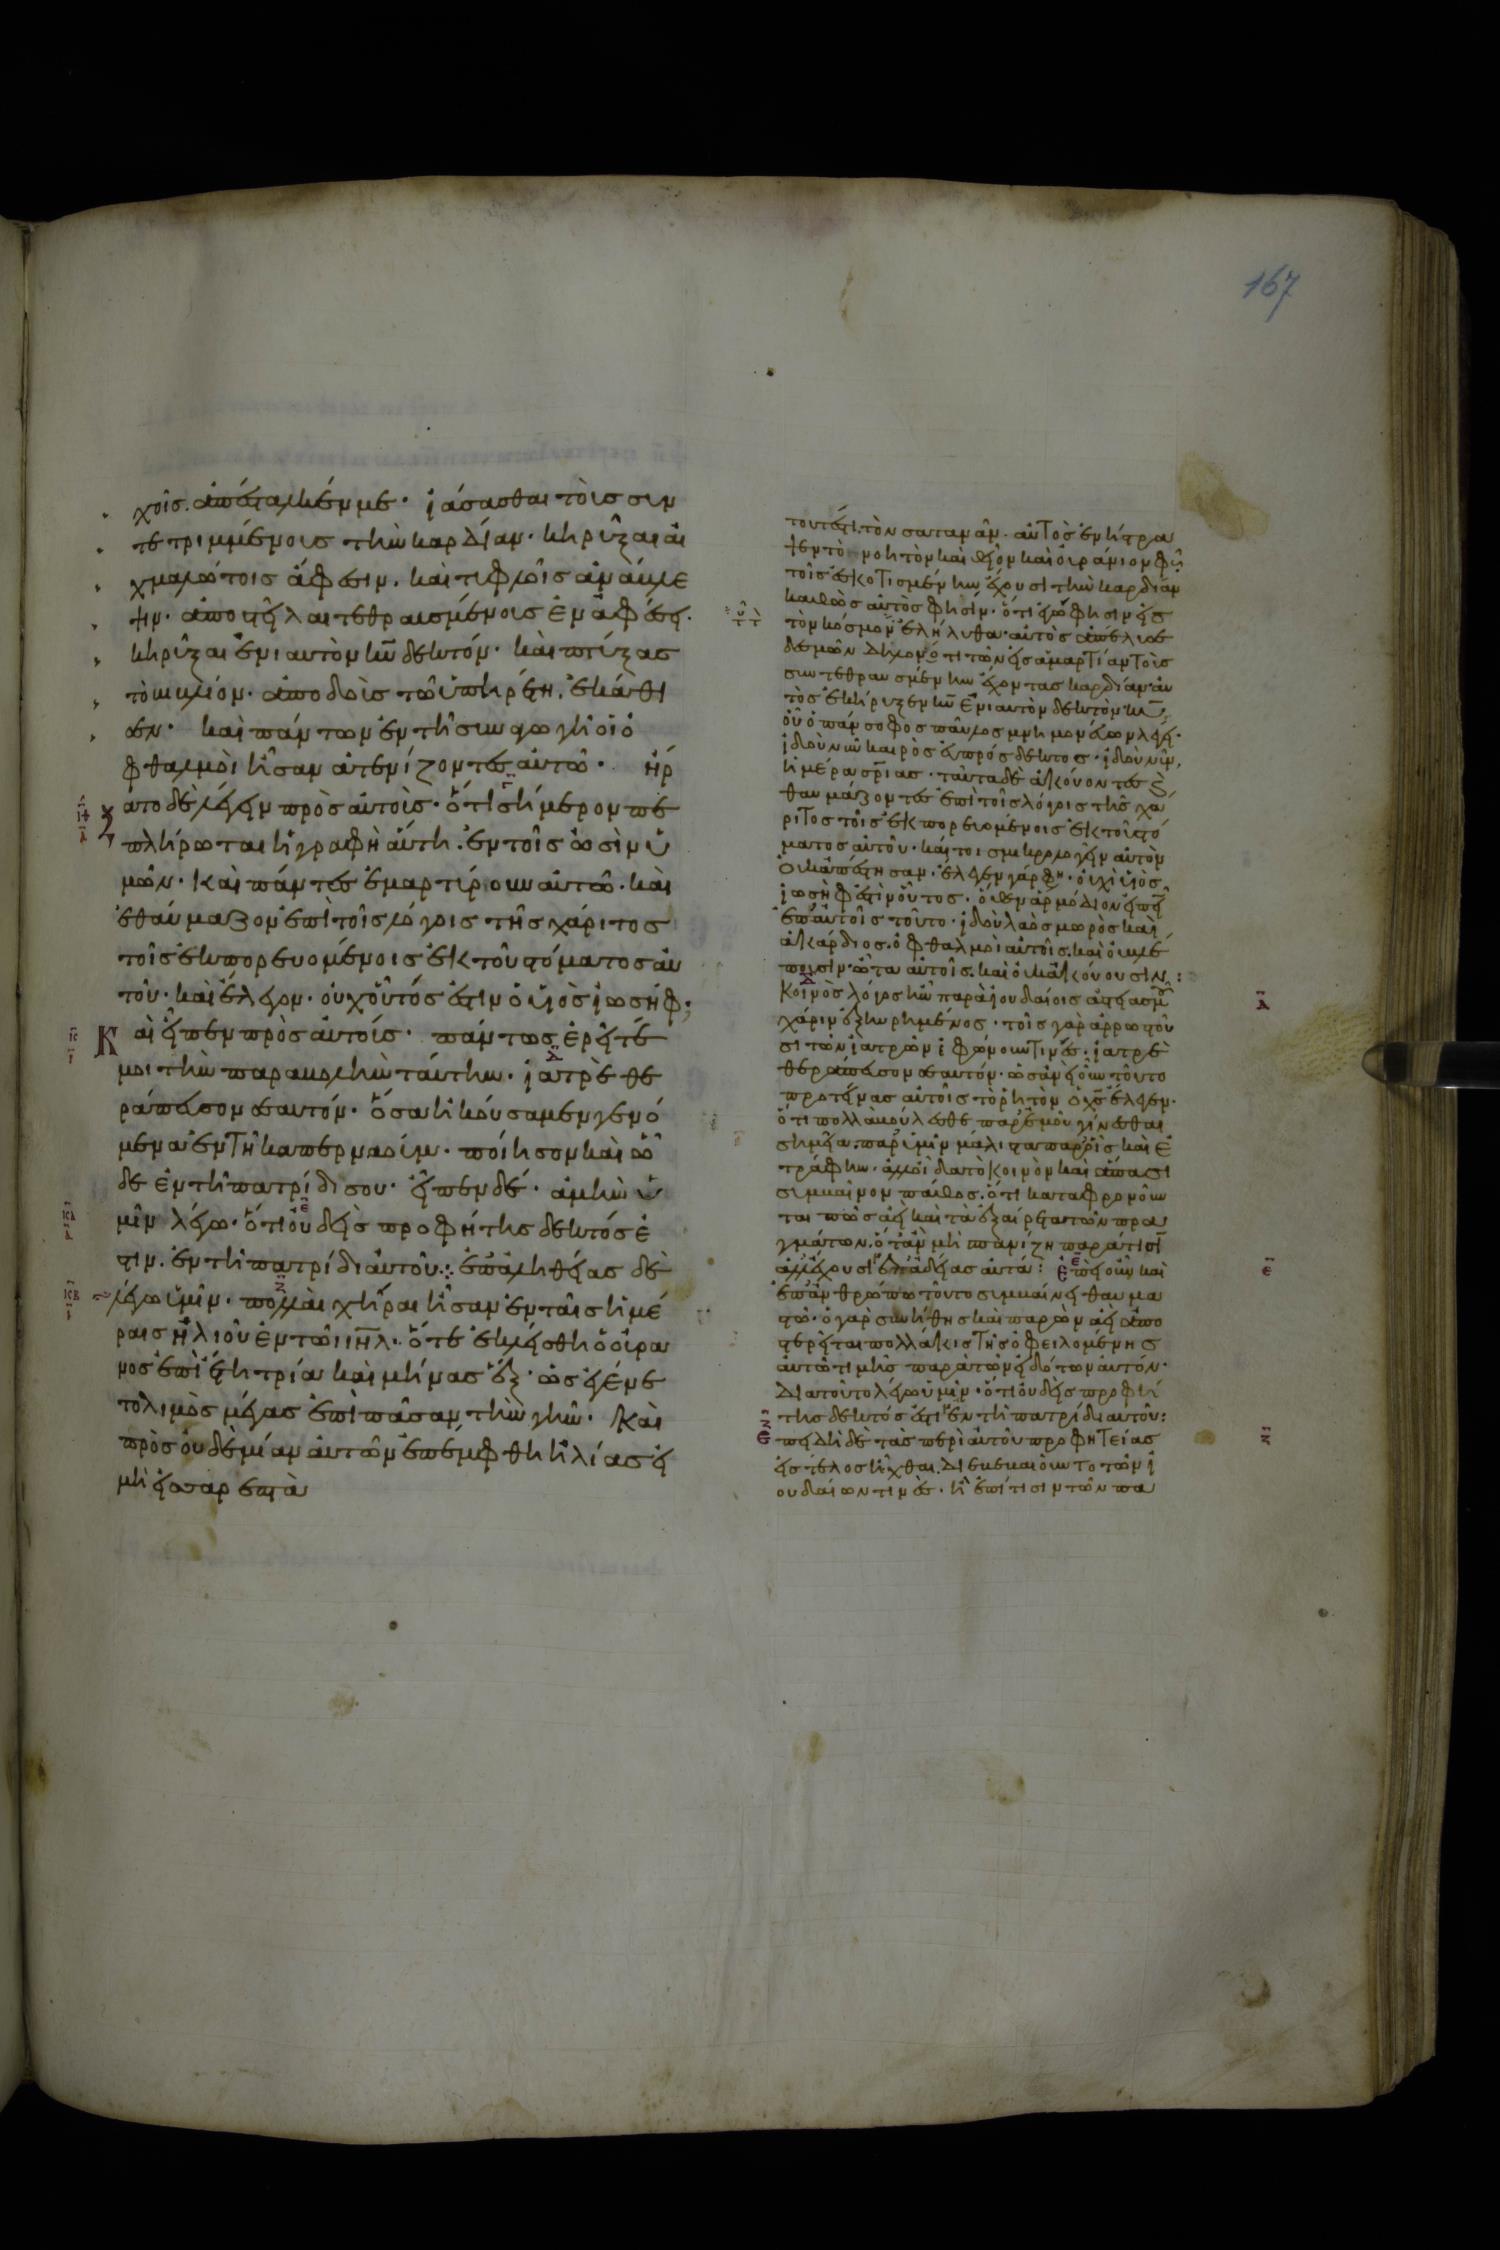 167
χοῖς. ἀπέσταλκέν με· ἰάσασθαι τοὺς συν
τετριμμένους τὴν καρδίαν· κηρῦξαι αἰ
χμαλώτοις ἄφεσιν. καὶ τυφλοῖς ἀνάβλε
ψιν· ἀποστεῖλαι τεθραυσμένους ἐν ἀφέσει.
κηρῦξαι ἐνιαυτὸν κ̅υ̅ δεκτόν· καὶ πτύξας
τὸ βιβλίον· ἀποδοὺς τῶ ὑπηρέτη, ἐκάθι
σεν· καὶ πάντων ἐν τῆ συναγωγῆ οἱ ὀ
φθαλμοὶ ἦσαν ἀτενίζοντες αὐτῶ· ἤρ
ατο δὲ λέγειν πρὸς αὐτούς· ὅτι σήμερον πε
πλήρωται ἡ γραφὴ αὕτη. ἐν τοῖς ὠσὶν ὑ
μῶν· καὶ πάντες ἐμαρτύρουν αὐτῶ. καὶ
ἐθαύμαζον ἐπὶ τοῖς λόγοις τῆς χάριτος
τοῖς ἐκπορευομένοις ἐκ τοῦ στόματος αὐ
τοῦ· καὶ ἔλεγον· οὐχ οὗτός ἐστιν ὁ υἱὸς ἰωσήφ;
Καὶ εἶπεν πρὸς αὐτούς· πάντως ἐρεῖτέ
μοι τὴν παραβολὴν ταύτην· ἰατρὲ θε
ράπευσον σεαυτόν· ὅσα ἠκούσαμεν γενό
μενα ἐν τῆ καπερναούμ· ποίησον καὶ ὧ
δε ἐν τῆ πατρίδι σου· εἶπεν δέ· ἀμὴν ὑ
μῖν λέγω· ὅτι οὐδεὶς προφήτης δεκτός ἐ
στιν. ἐν τῆ πατρίδι αὐτοῦ· ἐπ' ἀληθείας δὲ
λέγω ὑμῖν· πολλαὶ χῆραι ἦσαν ἐν ταῖς ἡμέ
ραις ἠλιοῦ ἐν τῶ ι̅η̅λ· ὅτε ἐκλείσθη ὁ οὐρα
νὸς ἐπὶ ἔτη τρία καὶ μῆνας ἕξ· ὡς ἐγένε
το λιμὸς μέγας ἐπὶ πᾶσαν τὴν γῆν· καὶ
πρὸς οὐδεμίαν αὐτῶν ἐπέμφθη ἠλίας εἰ
μὴ εἰς σάρεπτα
τουτέστι. τὸν σατανᾶν. αὐτὸς ἐνήστρα
ψεν τὸ νοητὸν καὶ θεῖον καὶ οὐράνιον φῶς
τοῖς ἐσκοτισμένην ἔχουσι τὴν καρδίαν
καθὼς αὐτὸς φησίν· ὅτι ἐγὼ φησιν εἰς
τὸν κόσμον ἐλήλυθα· αὐτὸς ἀπέλυσε
δεσμῶν
συντεθραυσμένην ἔχοντας καρδίαν αὐ
τὸς ἐκήρυξεν κ̅υ̅ ἐνιαυτὸν δεκτὸν
οὗ ὁ πάνσοφος παῦλος μνημονεύων λέγει·
ἰδοὺ νῦν καιρὸς εὐπρόσδεκτος· ἰδοὺ νῦν
ἡμέρα σ̅ρ̅ιας· ταῦτα δὲ ἀκούοντες ἐ
θαύμαζον τε ἐπὶ τοῖς λόγοις τῆς χά
ριτος τοῖς ἐκπορευομένοις ἐκ τοῦ στό
ματος αὐτοῦ· καίτοι σμικρολογεῖν αὐτὸν
οὐκ ἀπέστησαν· ἔλεγεν γὰρ φη· οὐχὶ υἱὸς
ἰωσήφ ἐστὶν οὗτος· ὅθεν ἁρμόδιον εἰπεῖν
ἐπ' αὐτοῖς τοῦτο· ἰδοὺ λαὸς μωρὸς καὶ
ἀκάρδιος. ὀφθαλμοὶ αὐτοῖς. καὶ οὐ βλέ
πουσιν· ὦτα αὐτοῖς. καὶ οὐκ ἀκούουσιν:
Κοινὸς λόγος ἦν παρὰ ἰουδαίοις ἀστεϊσμοῦ
χάριν ἐξηυρημένος· τοῖς γὰρ ἀρρωστοῦ
σι τῶν ἰατρῶν ἐφώνουν τινές· ἰατρὲ
θεράπευσον σεαυτόν· ὡσανεὶ οὖν τοῦτο
προτείνας αὐτοῖς τὸ ῥητὸν ὁ χ̅ς̅ ἔλεγεν·
ὅτι πολλὰ βούλεσθε παρ' ἐμοῦ γίνεσθαι
σημεῖα. παρ' ὑμῖν μάλιστα παρ' οἷς καὶ ἐ
τράφην. ἀλλ' οἶδα τὸ κοινὸν καὶ ἅπασι
συμβαῖνον πάθος. ὅτι καταφρονοῦν
ται πως ἀεὶ καὶ τὰ ἐξαίρετα τῶν πρα
γμάτων. ὅταν μὴ σπανίζη παρά τισι
ἀλλ' ἔχουσι ἐπ' ἀδείας αὐτά: Ἐπεὶ οὖν καὶ
ἐπ' ἀνθρώπων τοῦτο συμβαίνει θαυμα
στῶ· ὁ γὰρ συνήθης καὶ παρὼν ἀεὶ ἀπο
στερεῖται πολλάκις τῆς ὀφειλομένης
αὐτῶ τιμῆς παρὰ τῶν εἰδότων αὐτόν·
Διὰ τοῦτο λέγω ὑμῖν· ὅτι οὐδεὶς προφή
της δεκτός ἐστι ἐν τῆ πατρίδι αὐτοῦ:
Ἐπειδὴ δὲ τὰς περὶ αὐτοῦ προφητείας
εἰς τέλος ἦχθαι. διεβεβαιοῦντο τῶν ἰ
ουδαίων τινές. ἢ ἐπί τισιν τῶν πα